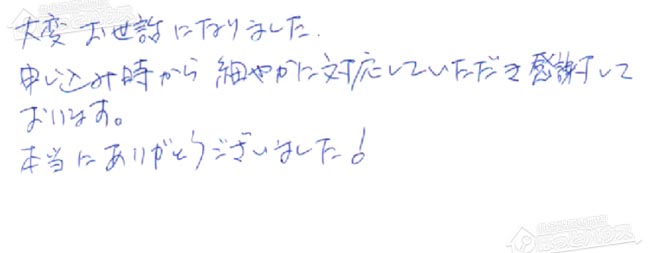 大変お世話になりました.
申し込み時から細やかに対応していただき感謝して
おります。
本当にありがとうございました!